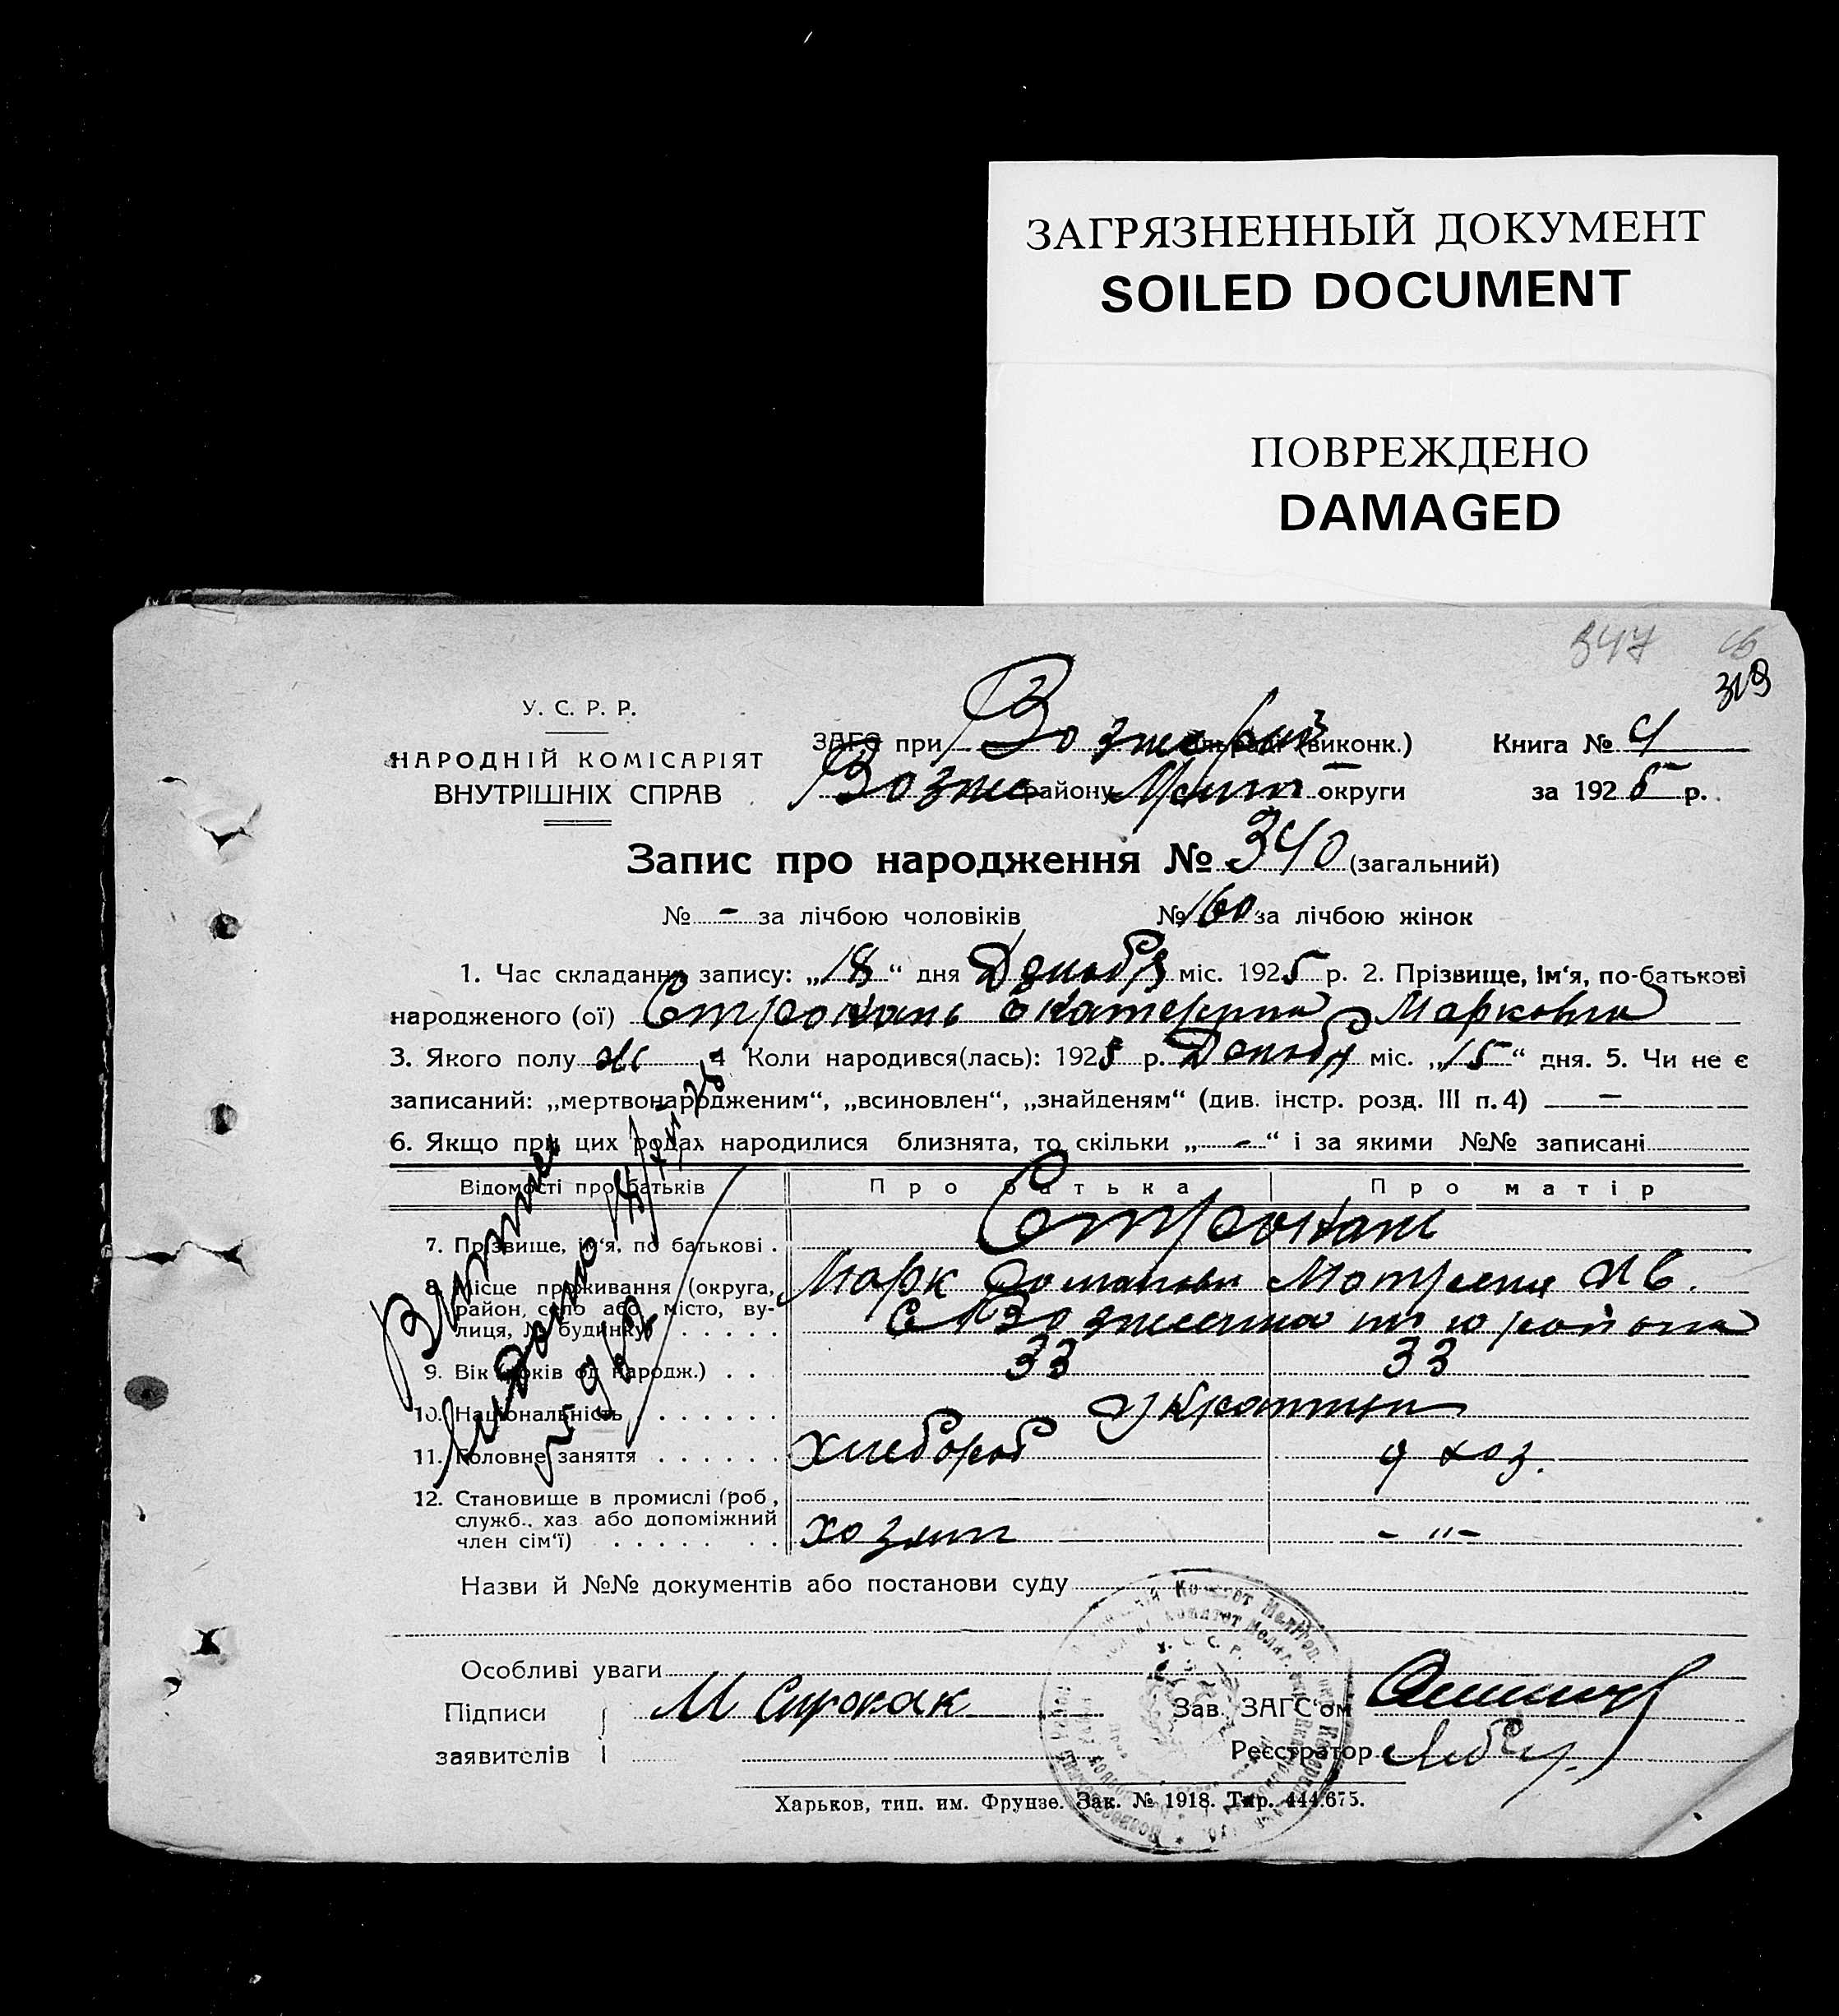 ЗАГРЯЗНЕННЫЙ ДОКУМЕНТ
SOILED DOCUMENT
ПОВРЕЖДЕНО
DAMAGED
347
319
У. С. Р. Р.
НАРОДНІЙ КОМІСАРІЯТ
ВНУТРІШНІХ СПРАВ
ЗАГС при (виконк.) Книга № 4
району Меліт округи за 1925 р.
Запис про народження № 340 (загальний)
№ - за лічбою чоловіків № 160 за лічбою жінок
1. Час складання запису: „18“ дня Декабря міс. 1925 р. 2. Прізвище, ім‘я, по-батькові
народженого (ої) Строкань Екатерина Марковна
3. Якого полу ж 4 Коли народився(лась): 1925 р. Декабр міс. „15“ дня. 5. Чи не є
записаний: „мертвонародженим“, „всиновлен“, „знайденям“ (див. інстр. розд. III п. 4) —
6. Якщо при цих родах народилися близнята, то скільки „-“ і за якими №№ записані
Відомості про батьків Про батька Про матір
Строкань
7. Прізвище, ім‘я, по батькові . Марк Мотрена Ив.
8. Місце проживання (округа,
район, село або місто, ву-
лиця, № будинку) . . . . . с Возжеенка того района
9. Вік (років од народж.) . . 33 33
10. Національність . . . . . . Украинци
11. Головне заняття . . . . . . хлебороб д хоз.
12. Становище в промислі (роб,
служб., хаз або допоміжний
член сім‘ї) . . . . . . . хозяин - " -
Назви й №№ документів або постанови суду
Особливі уваги
Підписи М Строкак Зав. ЗАГС‘ом
заявителів Реєстратор
Харьков, тип. им. Фрунзе. Зак. № 1918. Тир. 444.675.